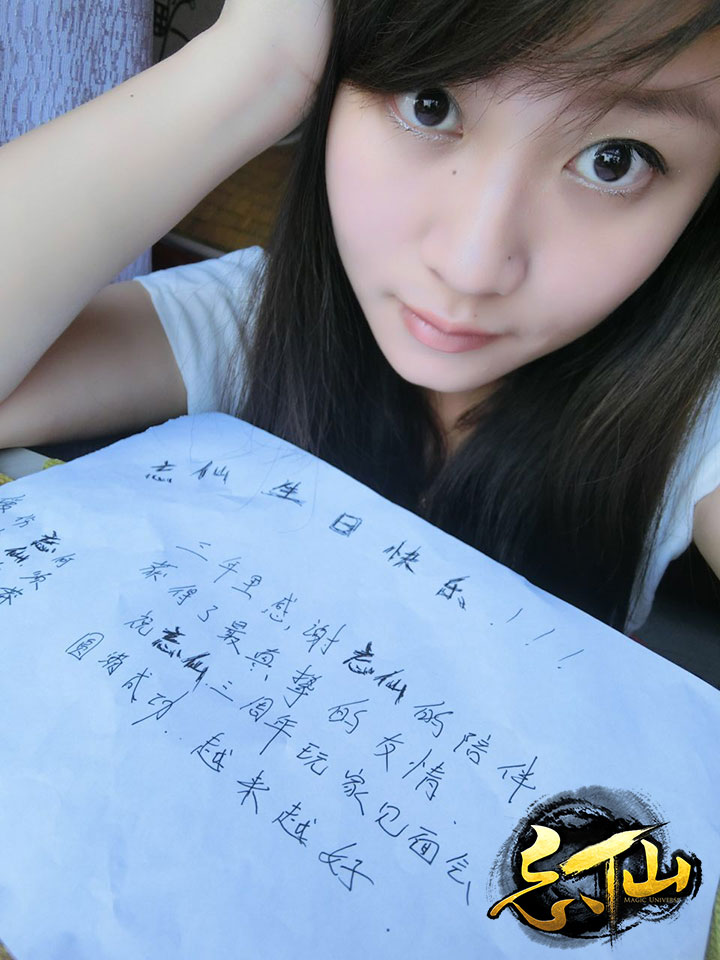 忘仙生日快乐!!!
三年里感谢忘仙的陪伴
获得了最真挚的友情.
祝忘仙三周年玩家见面会
圆满成功..越来越好
忘仙
MAGIC UNIVERSE